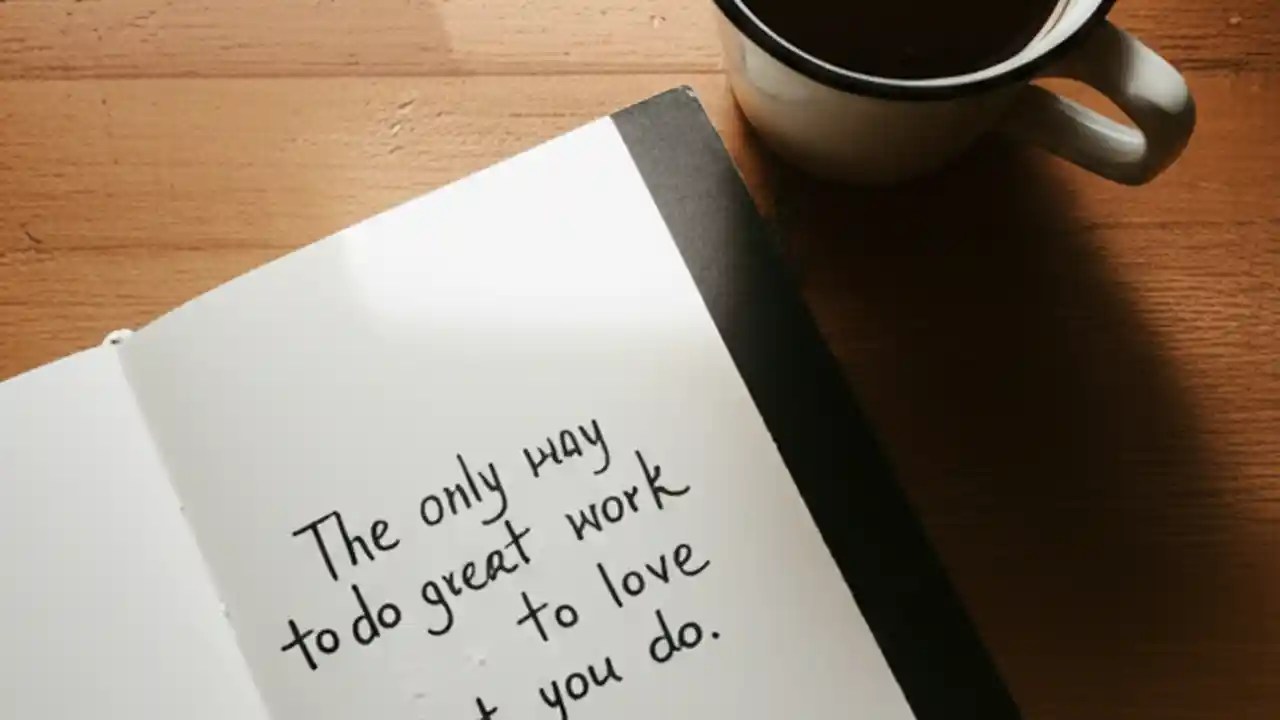 The only way
to do great work
to love
you do.